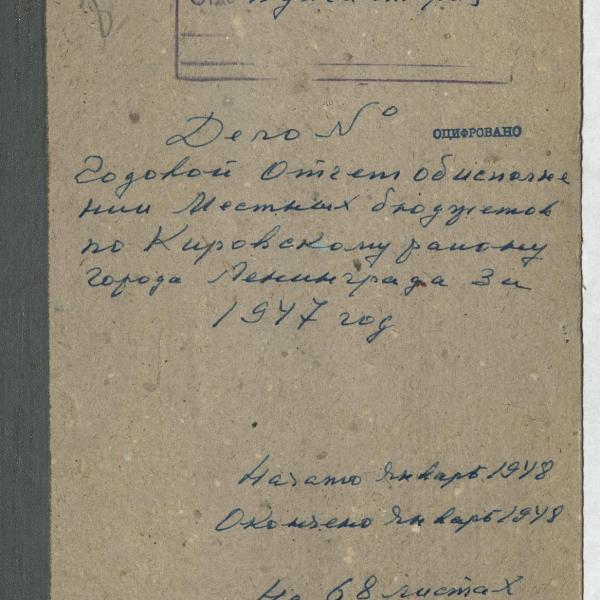 Дело №
ОЦИФРОВАНО
Годовой Отчет об исполне
нии Местных бюджетов
по Кировскому району
города Ленинграда За
1947 год
Начато Январь 1948
Окончено Январь 1948
На 68 листах